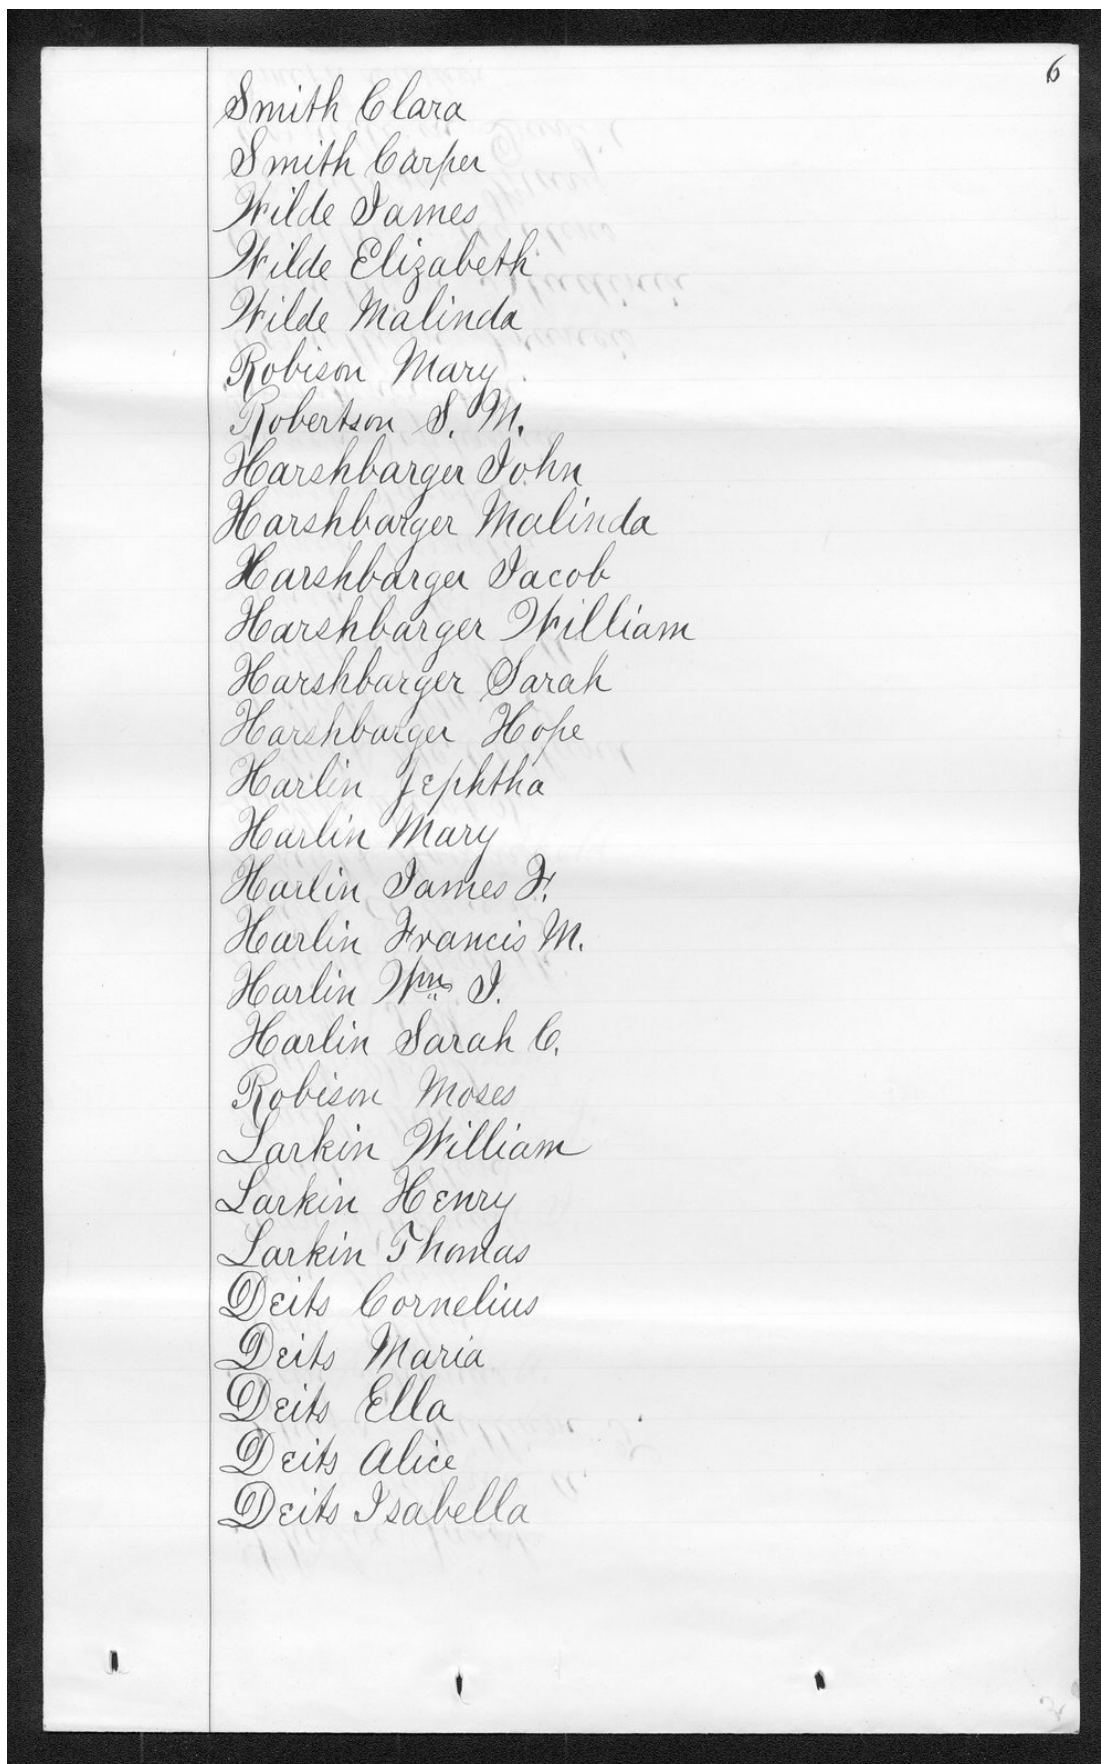 6
Smith Clara
Smith Carper
Wilde James
Wilde Elizabeth
Wilde Malinda
Robison Mary
Robertson S. M.
Harshbarger John
Harshbarger Malinda
Harshbarger Jacob
Harshbarger William
Harshbarger Sarah
Harshbarger Hope
Harlin Jephtha
Harlin Mary
Harlin James F.
Harlin Francis M.
Harlin Wm J.
Harlin Sarah C.
Robison Moses
Larkin William
Larkin Henry
Larkin Thomas
Deits Cornelius
Deits Maria
Deits Ella
Deits Alice
Deits Isabella